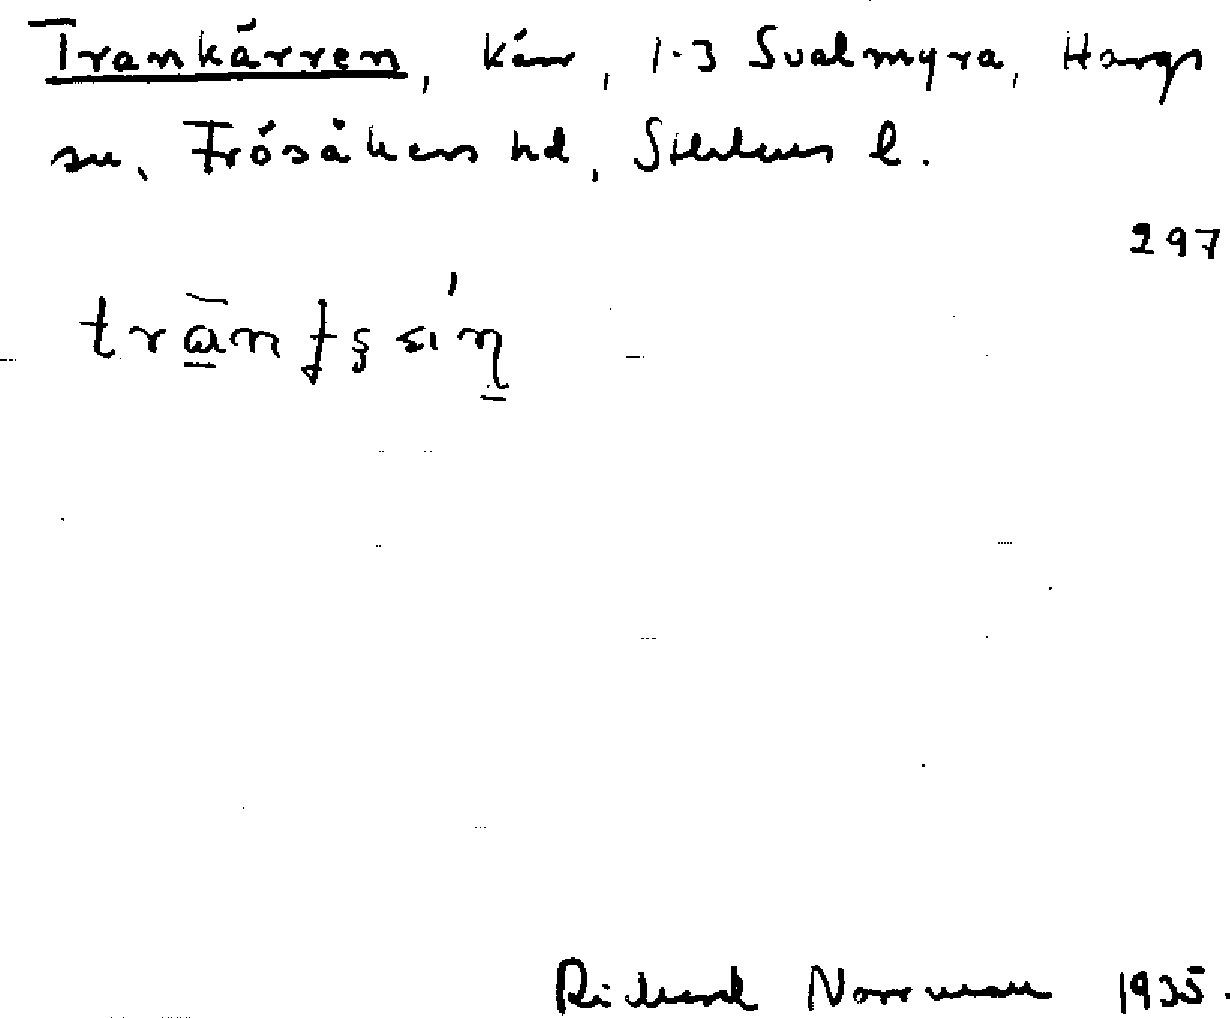 Trankärren, kärr, 1-3 Svalmyra, Hargs
sn, Frösåkers hd, Sthlms l.
297
Richard Norrman 1935.